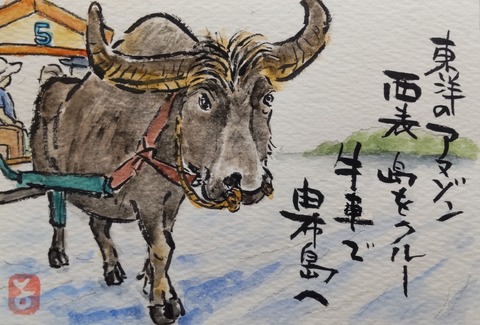 東洋のアマゾン
西表島をクルー
牛車で
由布島へ
5
と